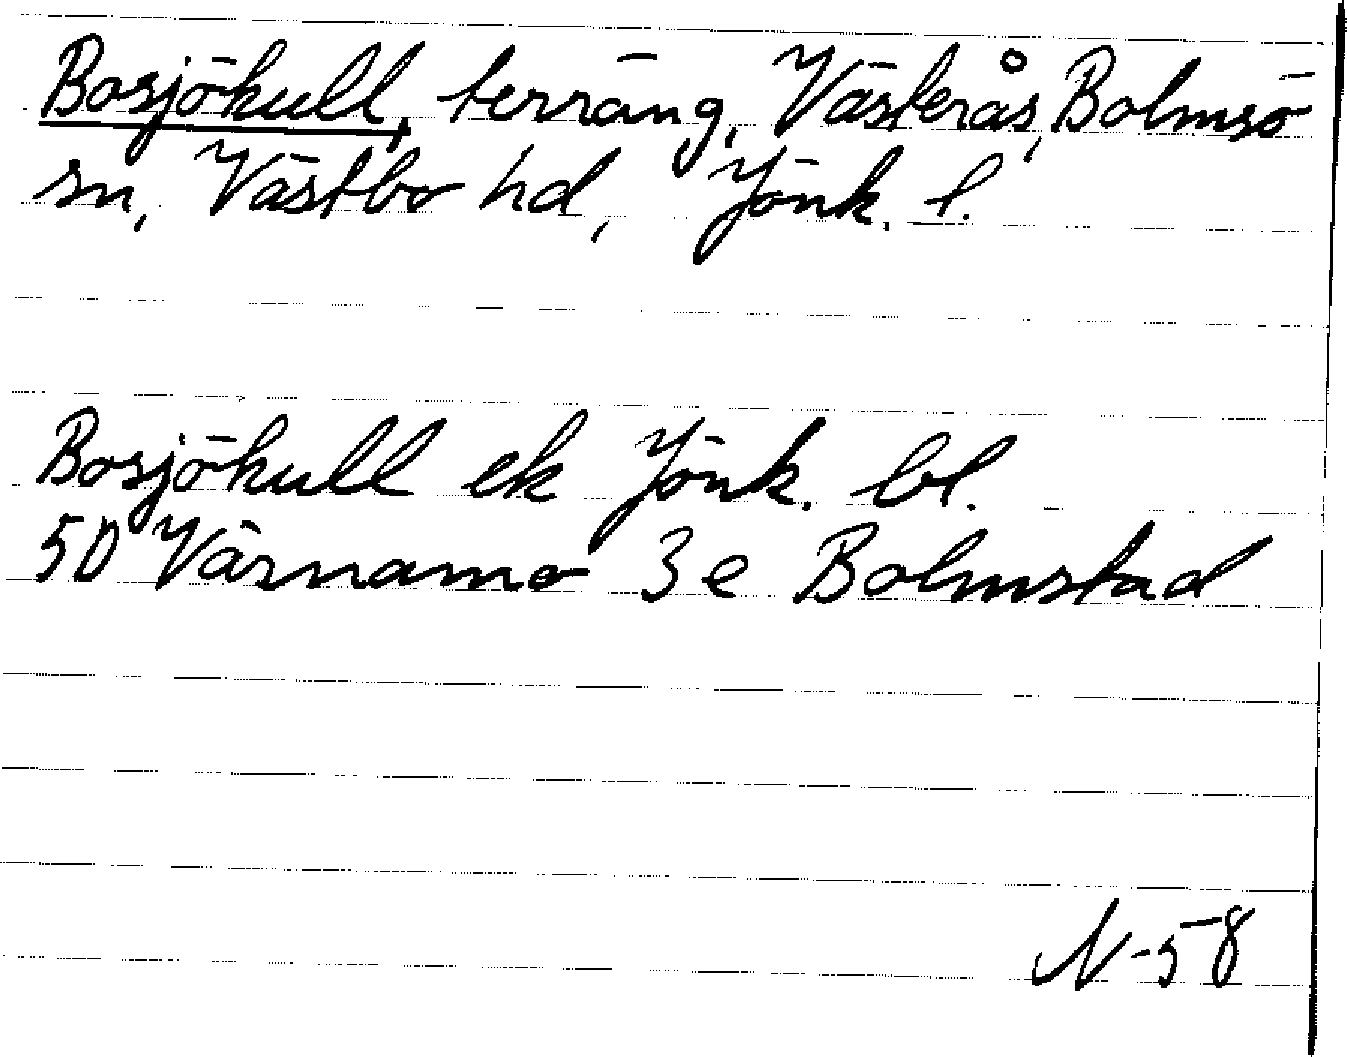 Bosjökull, terräng, Västerås, Bolmsö
sn, Västbo hd, Jönk. l.
Bosjökull ek Jönk. bl.
5D Värnamo 3e Bolmstad
N-58